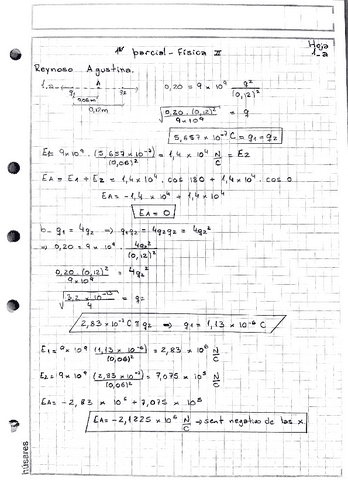 Hoja
1-a
1er parcial - Física II
Reynoso Agustina.
1.a- q1 A q2 0,20 = 9 x 10⁹ q²/(0,12)²
0,06m
0,12m
√(0,20 . (0,12)²/9 x 10⁹) = q
5,657 x 10⁻⁷ C = q1 = q2
E1 = 9 x 10⁹ . (5,657 x 10⁻⁷)/(0,06)² = 1,4 x 10⁶ N/C = E2
EA = E1 + E2 = 1,4 x 10⁶ . cos 180 + 1,4 x 10⁶ . cos 0
EA = -1,4 x 10⁶ + 1,4 x 10⁶
EA = 0
b- q1 = 4q2 → q1q2 = 4q2q2 = 4q2²
⇒ 0,20 = 9 x 10⁹ . 4q2²/(0,12)²
0,20 . (0,12)²/9 x 10⁹ = 4q2²
√(3,2 x 10⁻¹³/4) = q2
2,83 x 10⁻⁷ C = q2 ⇒ q1 = 1,13 x 10⁻⁶ C
E1 = 9 x 10⁹ (1,13 x 10⁻⁶)/(0,06)² = 2,83 x 10⁶ N/C
E2 = 9 x 10⁹ (2,83 x 10⁻⁷)/(0,06)² = 7,075 x 10⁵ N/C
EA = -2,83 x 10⁶ + 7,075 x 10⁵
EA = -2,1225 x 10⁶ N/C → sent negativo de las x.
húsares